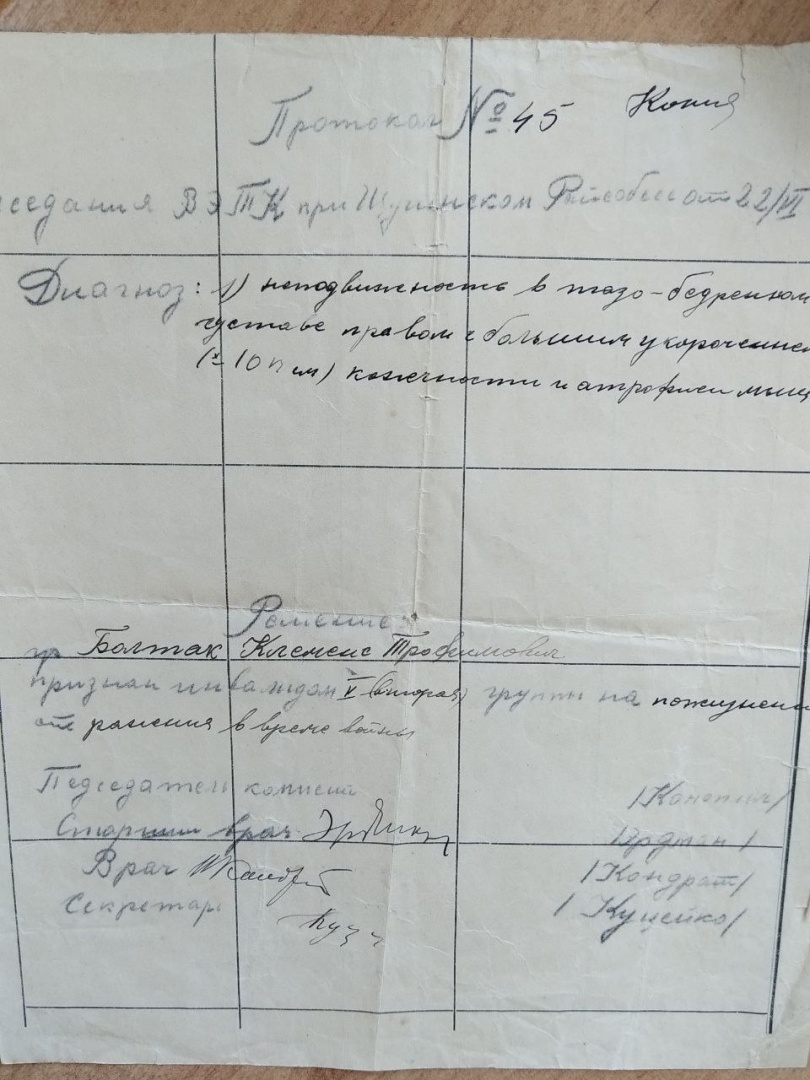 Протокол № 45 Копия
седания ВЭТК при Щучинском Райсобесе от 22/VI
Диагноз: 1) неподвижность в тазо-бедренном
суставе правом с большим укорочением
(± 10 см) конечности и атрофией мышц
Решение:
гр Болтак Клеменс Трофимович
признан инвалидом (вторая) группы на пожизненно
от ранения в время войны
Педседатель комисии /Конопич/
Старший врач /Эрдман/
Врач /Кондрат/
Секретарь /Куцейко/